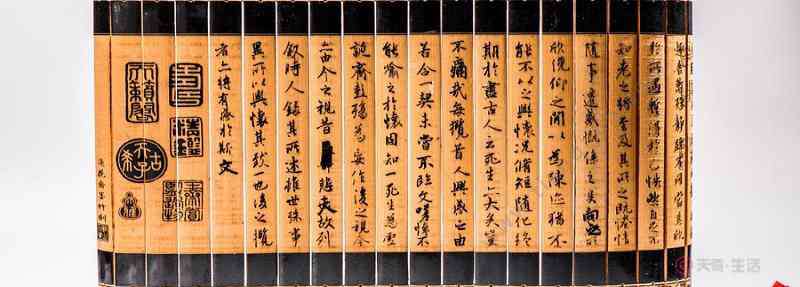 趣舍萬殊靜躁不同當其欣
於所遇暫得於己怏然自足不
知老之將至及其所之既惓情
隨事遷感慨係之矣向之所
欣俛仰之閒以為陳迹猶不
能不以之興懷況脩短隨化終
期於盡古人云死生亦大矣豈
不痛哉每攬昔人興感之由
若合一契未嘗不臨文嗟悼不
能喻之於懷固知一死生為虛
誕齊彭殤為妄作後之視今
亦由今之視昔悲夫故列
敘時人錄其所述雖世殊事
異所以興懷其致一也後之攬
者亦將有感於斯文
古希天子
天奇·生活